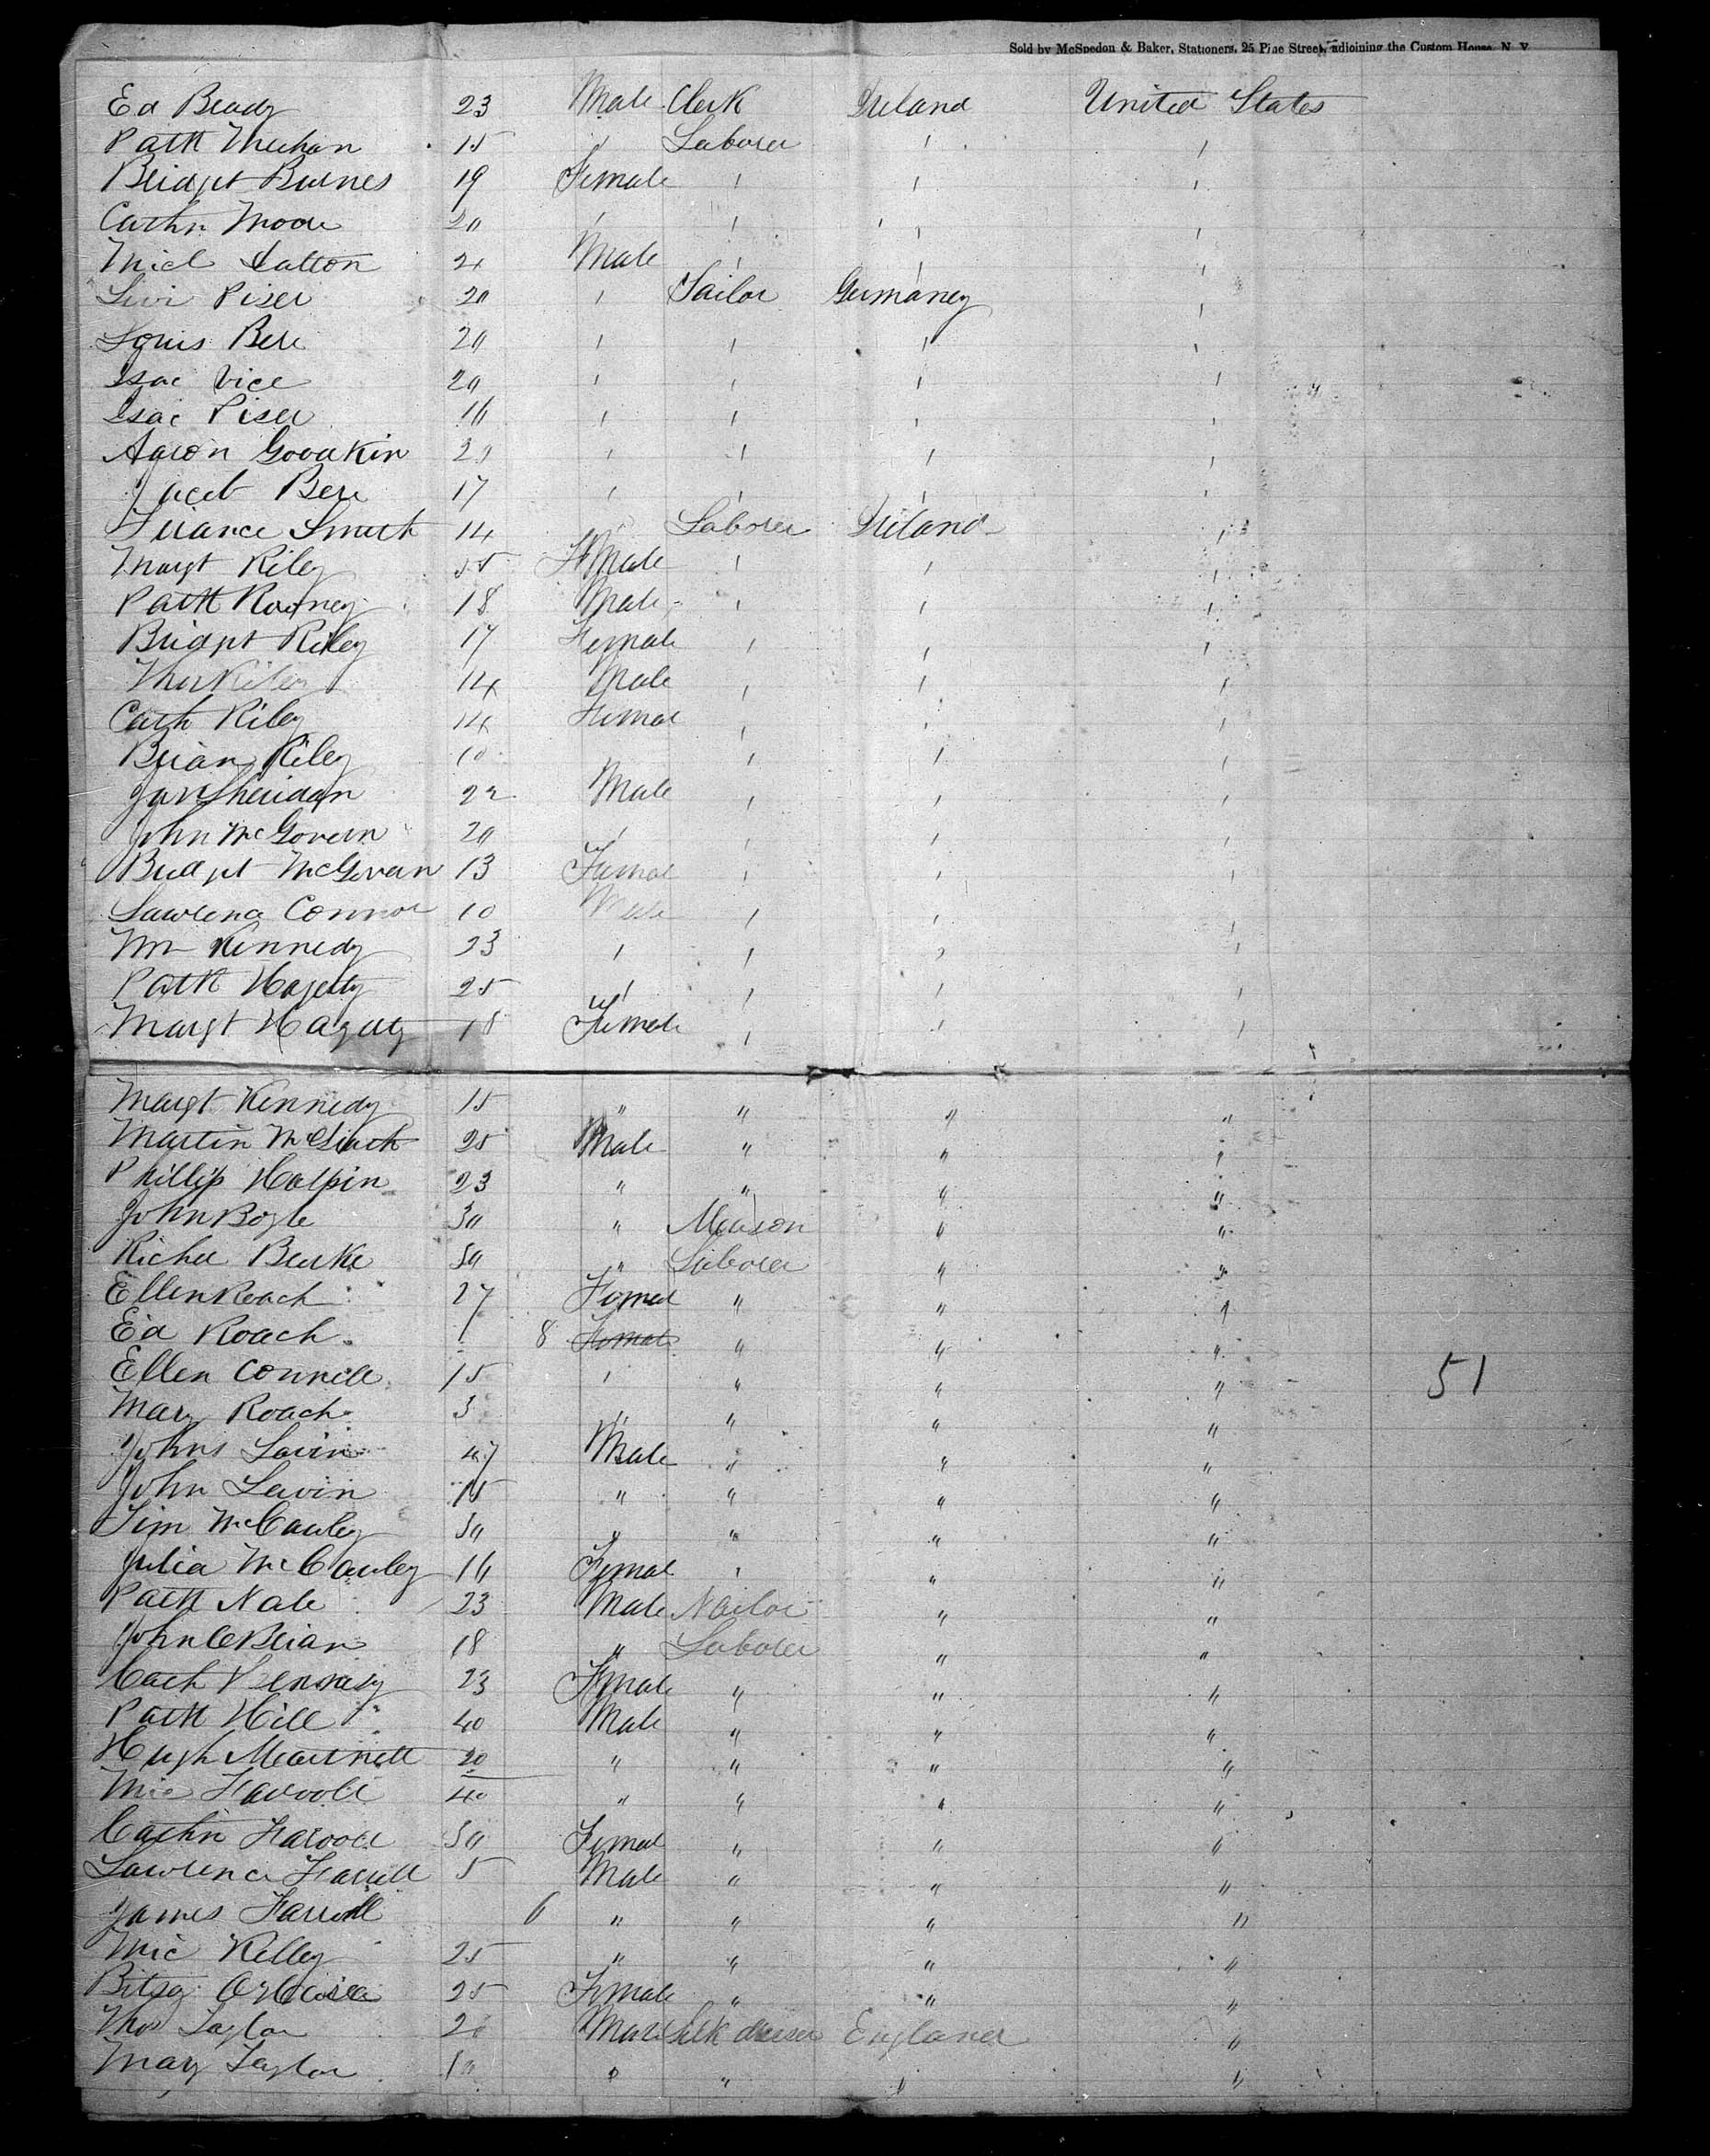 Sold by McSpedon & Baker, Stationers, 25 Pine Street, adjoining the Custom House, N. Y.
Ed Brady 23 Male Clerk Ireland United States
Patk Meehan 15 " Laborer " "
Bridgt Burnes 19 Female " " "
Cathn Moore 20 " " " "
Micl Dalton 21 Male " " "
Levi Piser 20 " Tailor Germaney "
Louis Bere 20 " " " "
Isac Vice 20 " " " "
Isac Piser 16 " " " "
Aaron Goodkin 20 " " " "
Jacob Bere 17 " " " "
Terance Smith 14 " Laborer Ireland "
Margt Riley 55 Female " " "
Patk Rooney 18 Male " " "
Bridgt Riley 17 Female " " "
Thos Riley 14 Male " " "
Cath Riley 14 Femal " " "
Brian Riley 10 " " "
Jas Sheridan 22 Male " " "
John McGovern 20 " " " "
Bridgt McGovern 13 Femal " " "
Lawrence Connor 10 Male " " "
Wm Kennedy 23 " " " "
Patk Hagerty 25 " " " "
Margt Hagerty 18 Female " " "
Margt Kennedy 15 " " " "
Martin 25 Male " " "
Phillip Halpin 23 " " " "
John Bogle 30 " Meason " "
Burke 50 " Laborer " "
Ellen Roach 27 Femal " " "
Ed Roach 8 " " "
Ellen Connell 15 " " " "
Mary Roach 3 " " " "
Johns Lavin 47 Male " " "
John Lavin 15 " " " "
Tim McCauley 50 " " " "
Julia McCauley 16 Femal " " "
Patk Nale 23 Male Nailor " "
John OBrian 18 " Laborer " "
Cath 23 Female " " "
Patk Hill 40 Male " " "
Hugh 20 " " " "
Mic 40 " " " "
Cathn 50 Femal " " "
Lawrence Farrell 5 Male " " "
James Farrell 6 " " " "
Mic Kelley 25 " " " "
Bitsy 25 Female " " "
Thos Taylor 20 Male Silk Englaned "
Mary Taylor " " " "
51